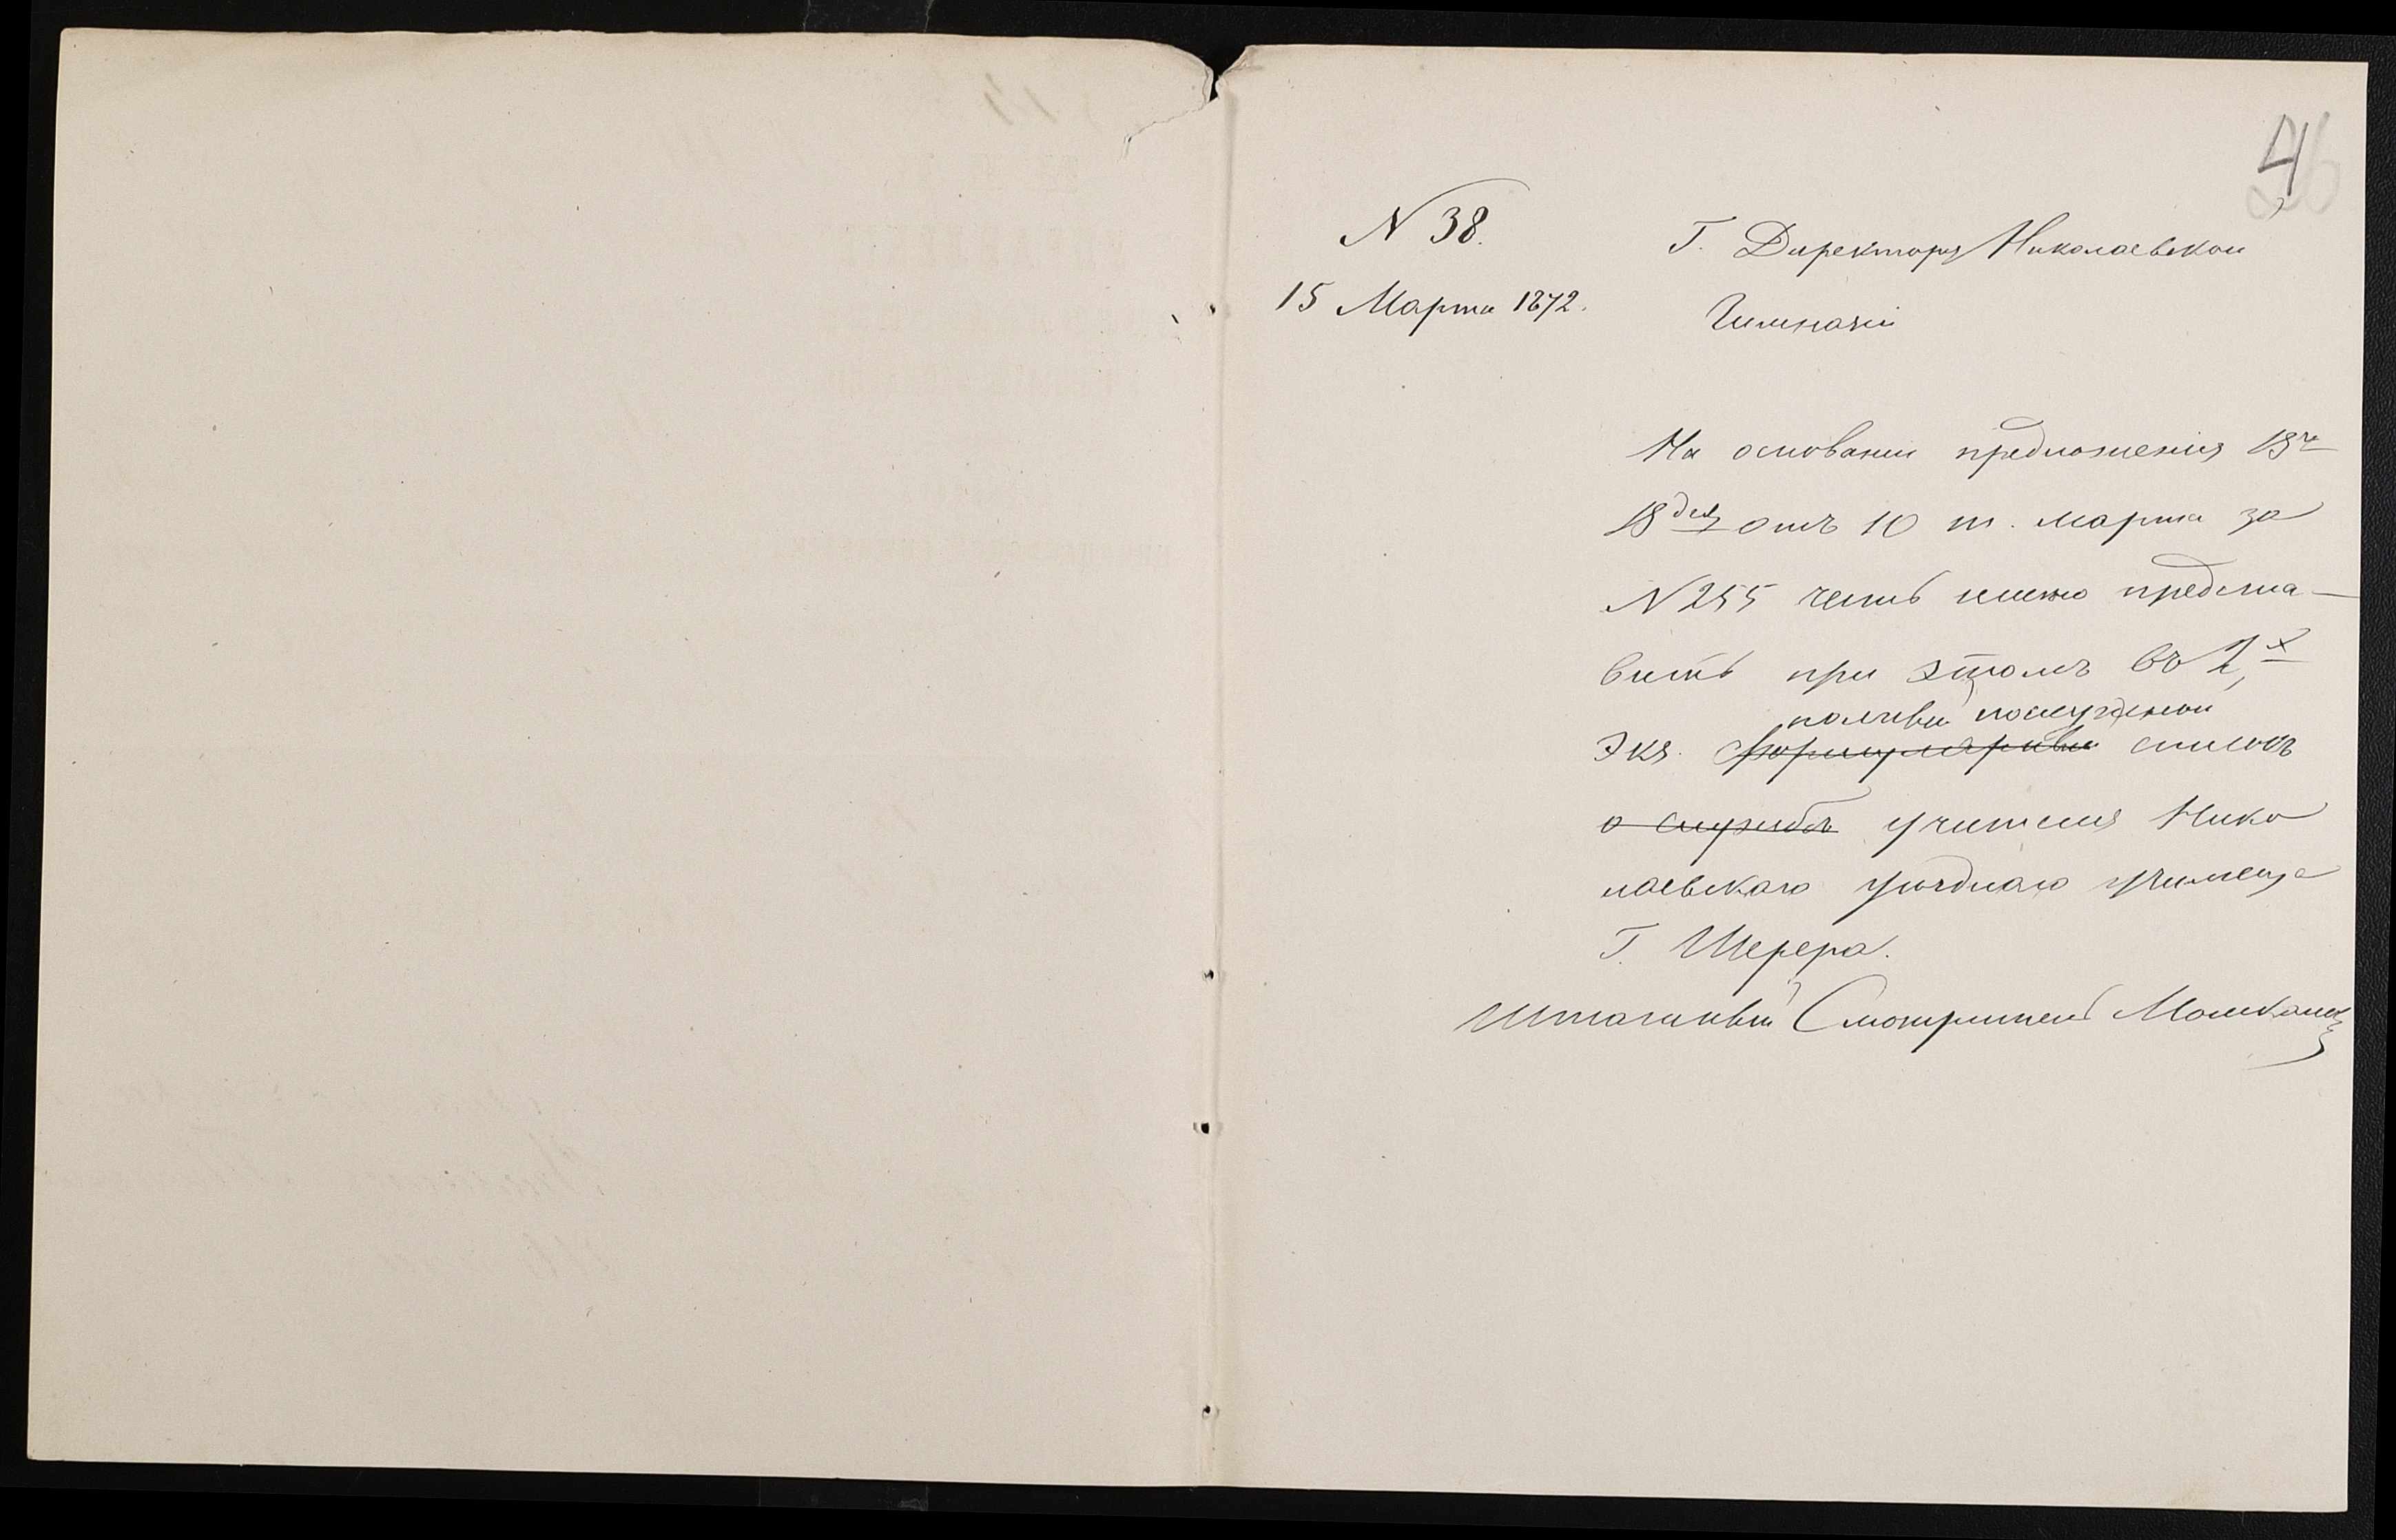 4
N 38.
15 Марта 1872.
Г. Директору Николаевской
Гимназіи
На основаніи предложенія Вго
В дія отъ 10 т. Марта за
N 255 честь имею предста-
вить при этомъ въ 2,х
полный послужной
экз. формулярный списокъ
о службѣ учителя Нико
лаевскаго уѣзднаго училища
Г. Шерера.
Штатный Смотритель